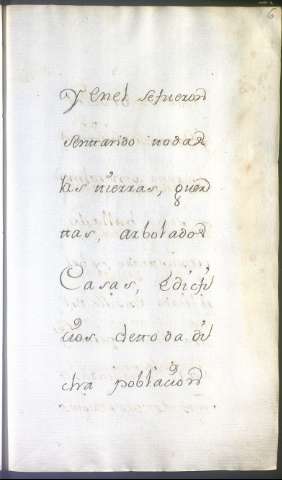 6
y enel sefueron
sentando todas
las tierras, guer
tas, arbolados
Casas, edicfi
cios detoda di
cha poblacion